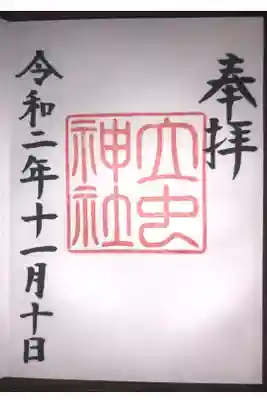 奉拝
立虫
神社
令和二年十一月十日